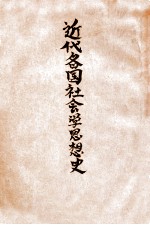 近代各国社会学思想史